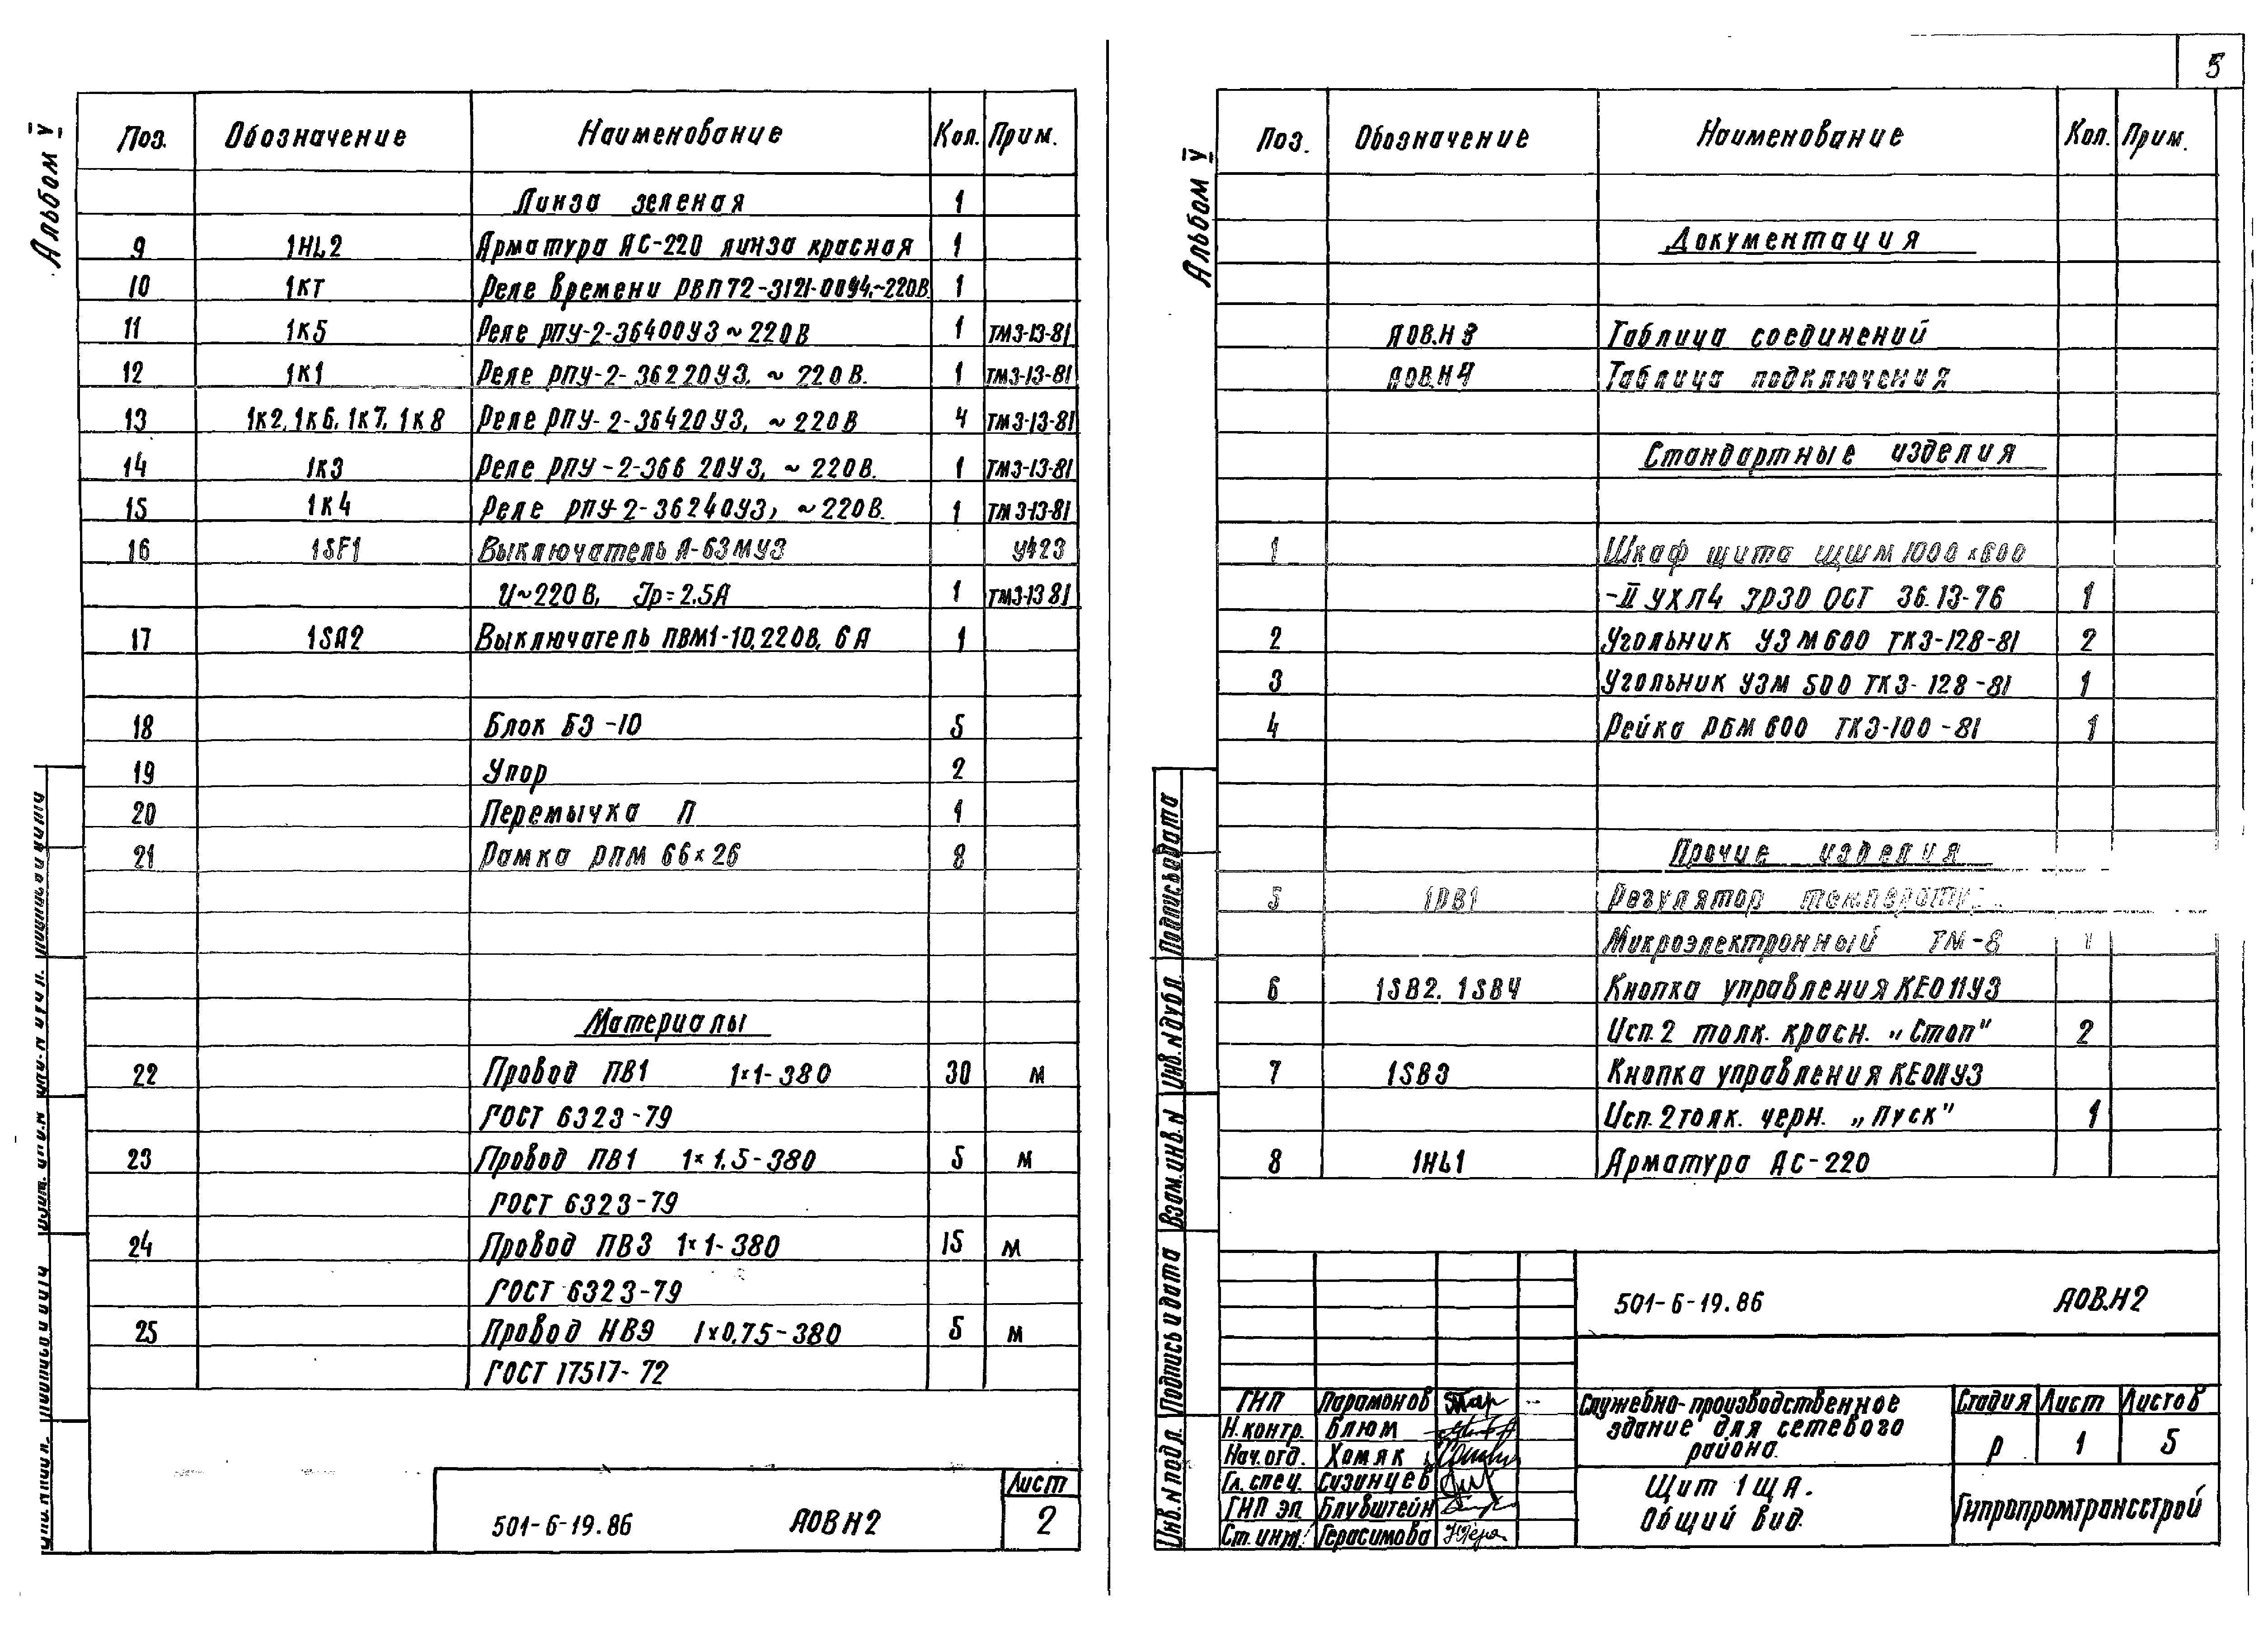 Альбом V
Поз. Обозначение Наименование Кол. Прим.
Линза зеленая 1
9 1HL2 Арматура АС-220 линза красная 1
10 1КТ Реле времени РВП72-3121-00У4,~220В 1
11 1К5 Реле РПУ-2-36400У3 ~ 220В 1 ТМ3-13-81
12 1К1 Реле РПУ-2-36220У3, ~ 220В. 1 ТМ3-13-81
13 1К2, 1К6, 1К7, 1К8 Реле РПУ-2-36420У3, ~ 220В 4 ТМ3-13-81
14 1К3 Реле РПУ-2-36620У3, ~ 220В. 1 ТМ3-13-81
15 1К4 Реле РПУ-2-36240У3, ~220В. 1 ТМ3-13-81
16 1SF1 Выключатель А-63МУ3 У423
U~220В, Jр=2.5А 1 ТМ3-13 81
17 1SA2 Выключатель ПВМ1-10,220В, 6А 1
18 Блок БЗ-10 5
19 Упор 2
20 Перемычка П 1
21 Рамка РПМ 66×26 8
Материалы
22 Провод ПВ1 1×1-380 30 м
ГОСТ 6323-79
23 Провод ПВ1 1×1,5-380 5 м
ГОСТ 6323-79
24 Провод ПВ3 1×1-380 15 м
ГОСТ 6323-79
25 Провод НВЭ 1×0,75-380 5 м
ГОСТ 17517-72
501-6-19.86 АОВ Н2
Лист
2
5
Альбом V
Поз. Обозначение Наименование Кол. Прим.
Документация
АОВ.Н3 Таблица соединений
АОВ.Н4 Таблица подключения
Стандартные изделия
1 Шкаф щита ЩШМ 1000×600
-II УХЛ4 JP30 ОСТ 36.13-76 1
2 Угольник УЗМ600 ТК3-128-81 2
3 Угольник УЗМ 500 ТК3-128-81 1
4 Рейка РБМ 600 ТК3-100-81 1
Прочие изделия
5 Регулятор
Микроэлектронный ТМ-8 1
6 1SB2, 1SB4 Кнопка управления КЕ011У3
Исп.2 толк. красн. „Стоп" 2
7 1SB3 Кнопка управления КЕ011У3
Исп.2 толк. черн. „Пуск" 1
8 1HL1 Арматура АС-220
501-6-19.86 АОВ.Н2
ГИП Парамонов
Н.контр. Блюм
Нач.отд. Хомяк
Гл.спец. Сизинцев
ГИП эл. Блувштейн
Ст.инж. Герасимова
Служебно-производственное
здание для сетевого
района.
Стадия Лист Листов
Р 1 5
Щит 1ЩА.
Общий вид.
Гипропромтрансстрой
Инв.N подл. Подпись и дата Взам.инв.N Инв.N дубл. Подпись и дата